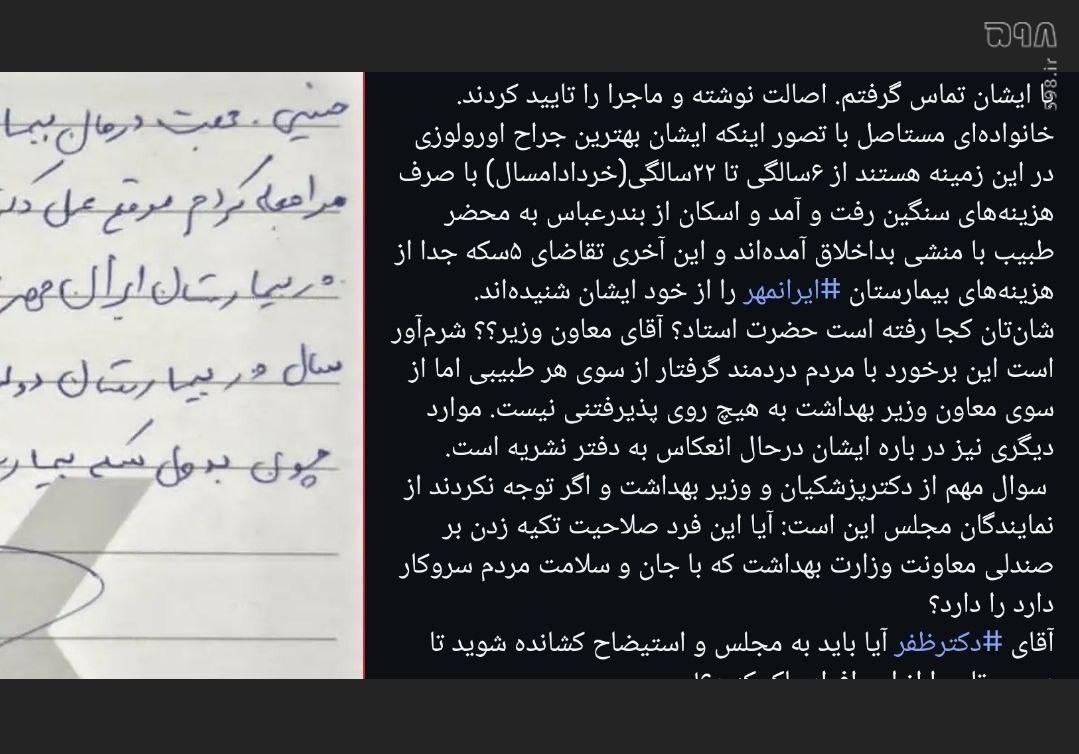 ۵۹۸
598.ir
با ایشان تماس گرفتم. اصالت نوشته و ماجرا را تایید کردند.
خانواده‌ای مستاصل با تصور اینکه ایشان بهترین جراح اورولوزی
در این زمینه هستند از ۶سالگی تا ۲۲سالگی(خردادامسال) با صرف
هزینه‌های سنگین رفت و آمد و اسکان از بندرعباس به محضر
طبیب با منشی بداخلاق آمده‌اند و این آخری تقاضای ۵سکه جدا از
هزینه‌های بیمارستان #ایرانمهر را از خود ایشان شنیده‌اند.
شان‌تان کجا رفته است حضرت استاد؟ آقای معاون وزیر؟؟ شرم‌آور
است این برخورد با مردم دردمند گرفتار از سوی هر طبیبی اما از
سوی معاون وزیر بهداشت به هیچ روی پذیرفتنی نیست. موارد
دیگری نیز در باره ایشان درحال انعکاس به دفتر نشریه است.
سوال مهم از دکترپزشکیان و وزیر بهداشت و اگر توجه نکردند از
نمایندگان مجلس این است: آیا این فرد صلاحیت تکیه زدن بر
صندلی معاونت وزارت بهداشت که با جان و سلامت مردم سروکار
دارد را دارد؟
آقای #دکترظفر آیا باید به مجلس و استیضاح کشانده شوید تا
جهت درمان
مراجعه کردم موقع عمل
در بیمارستان ایران مهر
سال در بیمارستان
چون بدون سکه